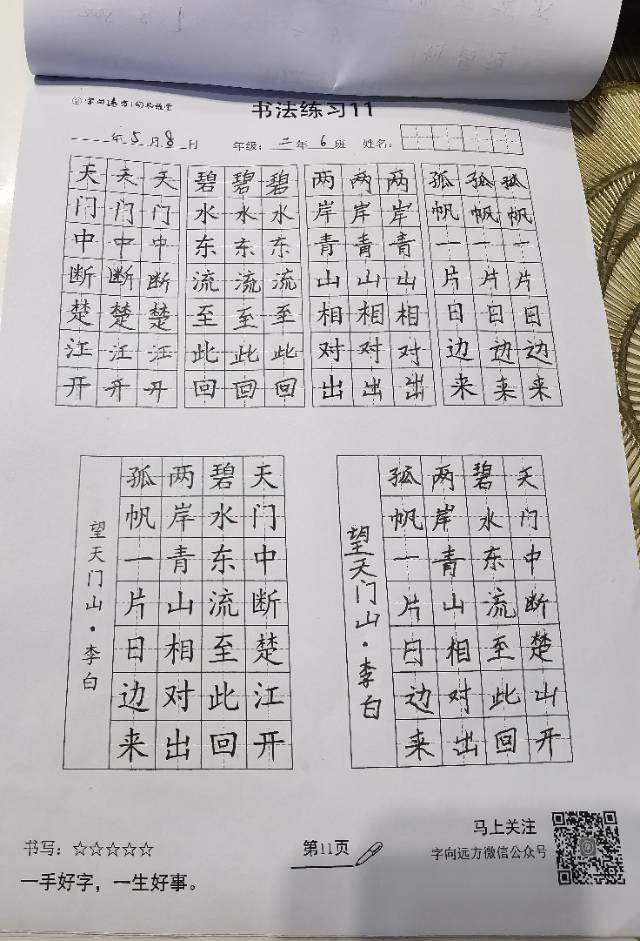 书法练习11
年5月8日 年级:二年6班 姓名:
天门中断楚江开
天门中断楚江开
天门中断楚江开
碧水东流至此回
碧水东流至此回
碧水东流至此回
两岸青山相对出
两岸青山相对出
两岸青山相对出
孤帆一片日边来
孤帆一片日边来
孤帆一片日边来
天门中断楚江开
碧水东流至此回
两岸青山相对出
孤帆一片日边来
望天门山·李白
天门中断楚山开
碧水东流至此回
两岸青山相对出
孤帆一片日边来
望天门山·李白
书写:☆☆☆☆☆
一手好字,一生好事。
第11页
马上关注
字向远方微信公众号